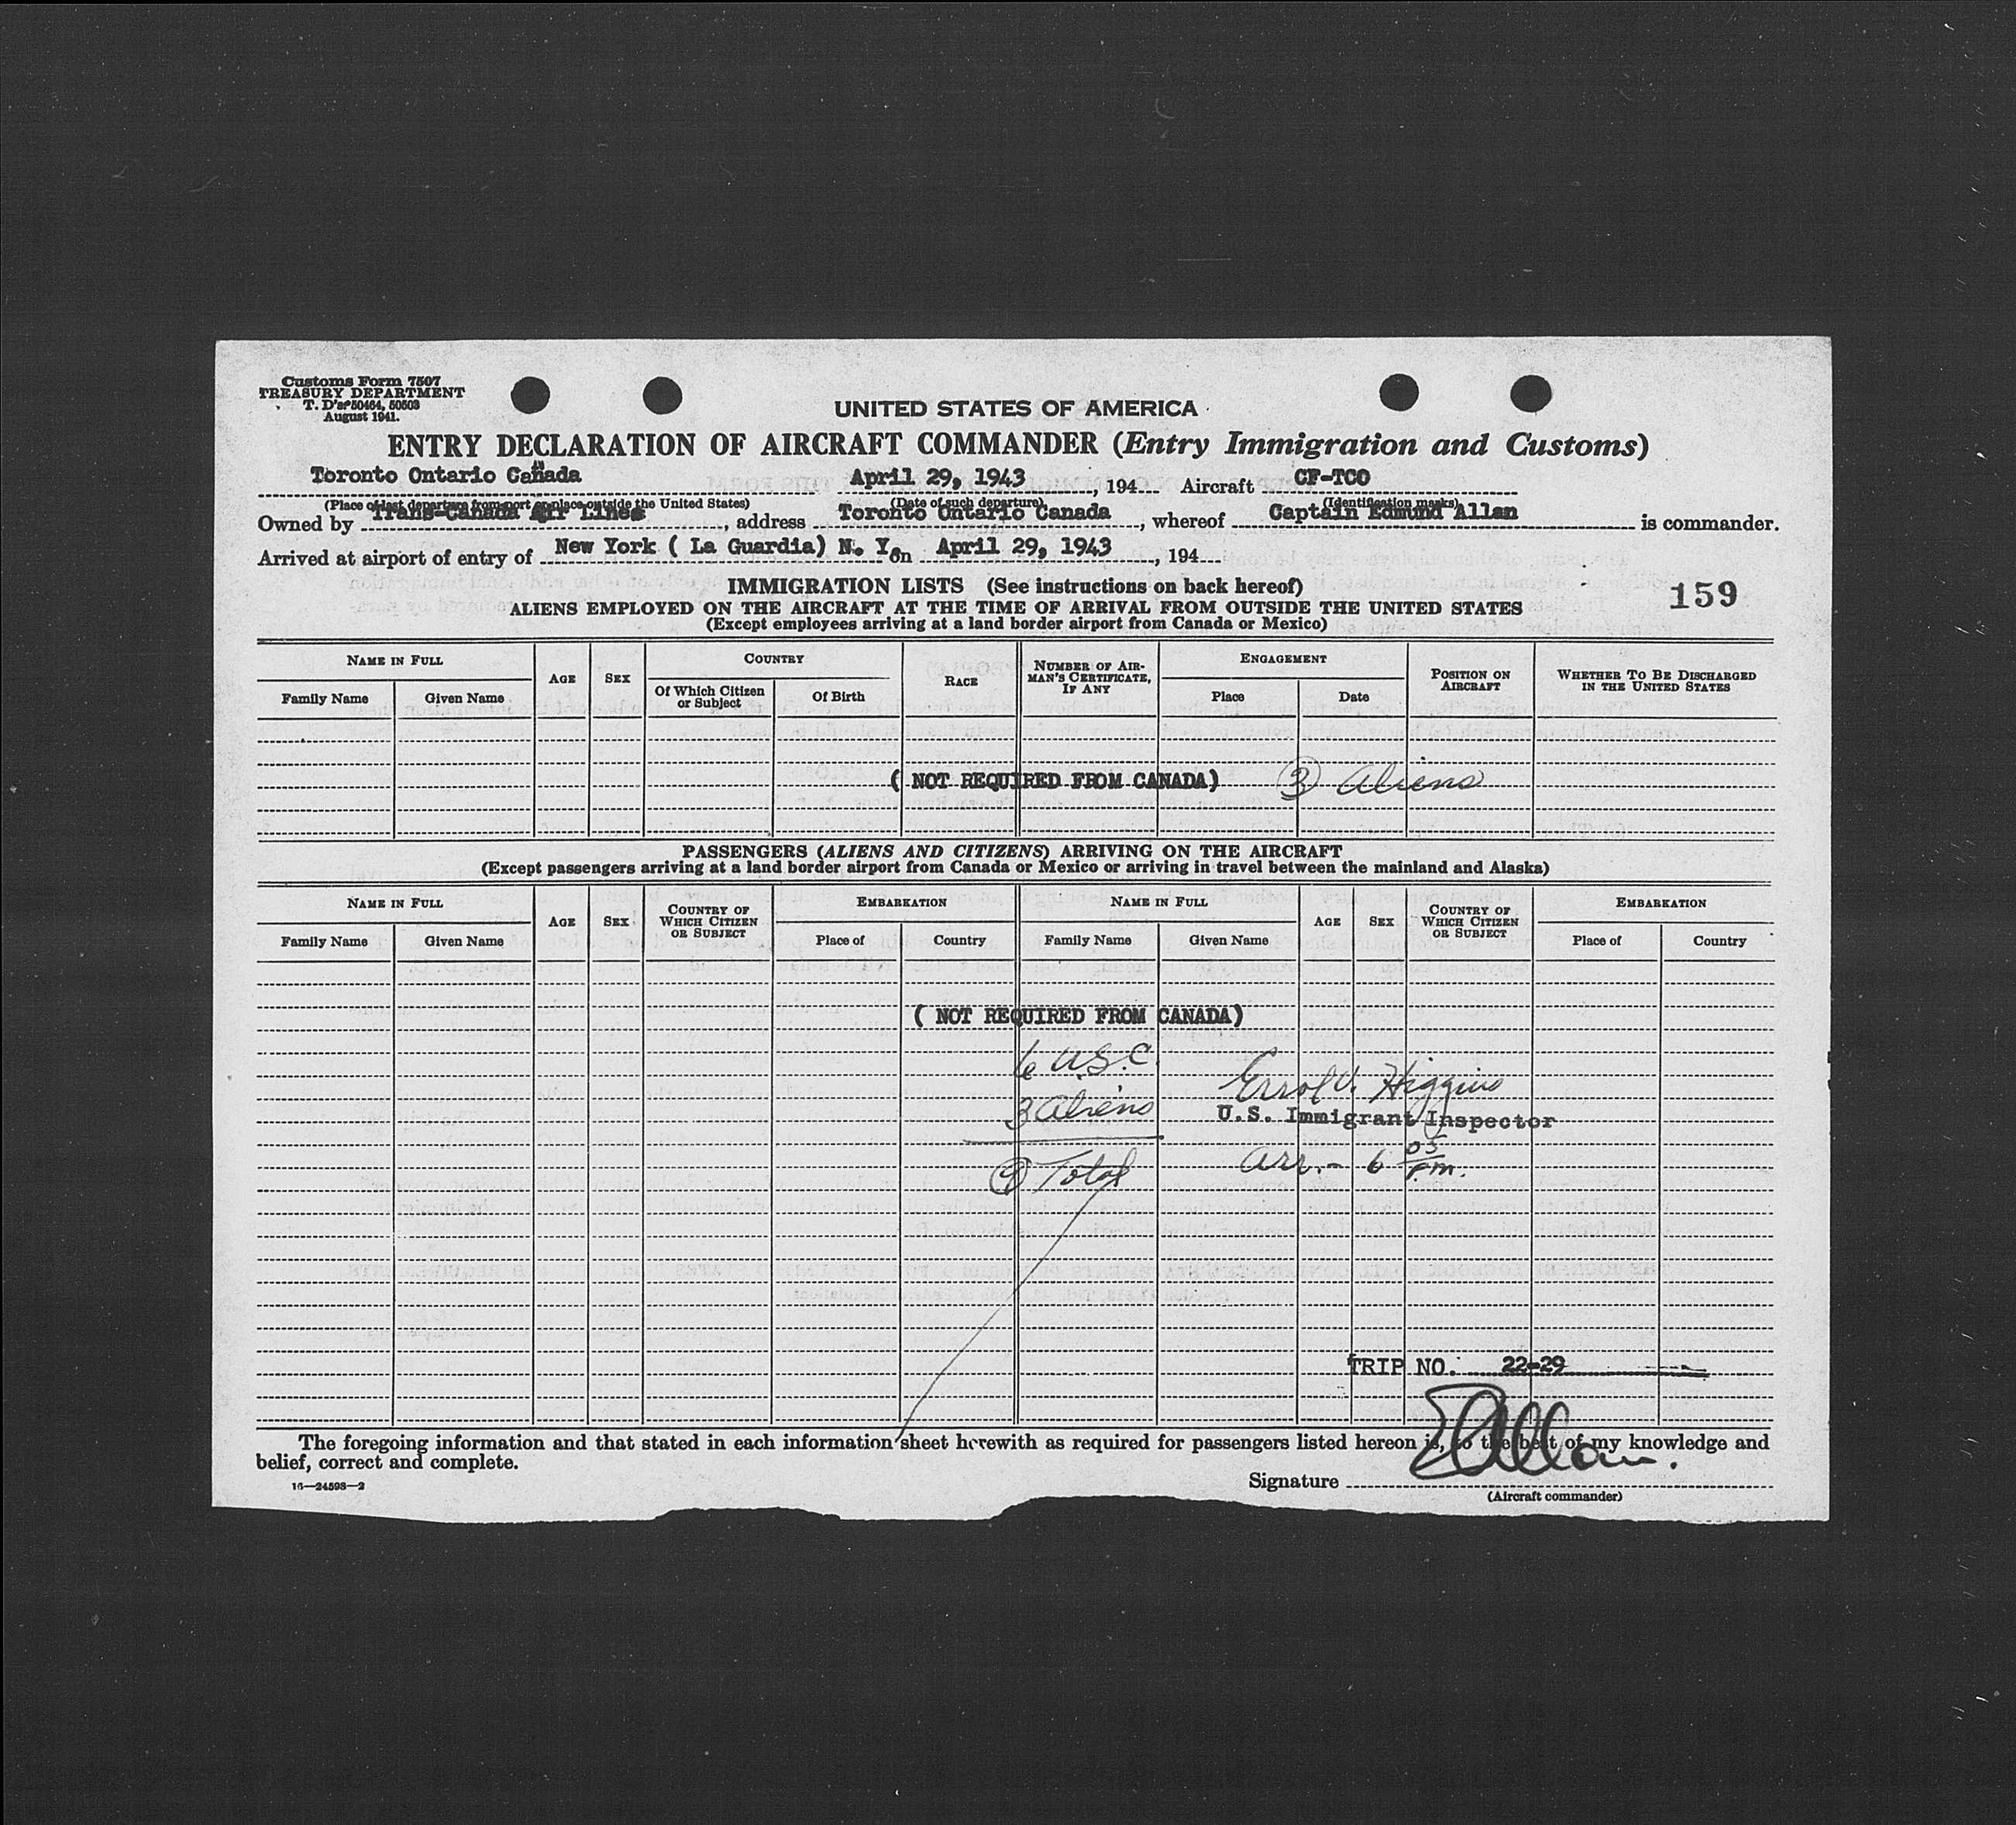 Customs Form 7507
TREASURY DEPARTMENT
T. D's 50464, 50503
August 1941.
UNITED STATES OF AMERICA
ENTRY DECLARATION OF AIRCRAFT COMMANDER (Entry Immigration and Customs)
Toronto Ontario Canada April 29, 1943, 194 Aircraft CF-TCO
(Place of last departure from port or place outside the United States) (Date of such departure) (Identification marks)
Owned by Trans-Canada Air Lines, address Toronto Ontario Canada, whereof Captain Edmund Allan is commander.
Arrived at airport of entry of New York ( La Guardia) N. Y. on April 29, 1943, 194
IMMIGRATION LISTS (See instructions on back hereof)
159
ALIENS EMPLOYED ON THE AIRCRAFT AT THE TIME OF ARRIVAL FROM OUTSIDE THE UNITED STATES
(Except employees arriving at a land border airport from Canada or Mexico)
NAME IN FULL AGE SEX COUNTRY RACE NUMBER OF AIRMAN'S CERTIFICATE, IF ANY ENGAGEMENT POSITION ON AIRCRAFT WHETHER TO BE DISCHARGED IN THE UNITED STATES
Family Name Given Name Of Which Citizen or Subject Of Birth Place Date
( NOT REQUIRED FROM CANADA) 3 Aliens
PASSENGERS (ALIENS AND CITIZENS) ARRIVING ON THE AIRCRAFT
(Except passengers arriving at a land border airport from Canada or Mexico or arriving in travel between the mainland and Alaska)
NAME IN FULL AGE SEX COUNTRY OF WHICH CITIZEN OR SUBJECT EMBARKATION NAME IN FULL AGE SEX COUNTRY OF WHICH CITIZEN OR SUBJECT EMBARKATION
Family Name Given Name Place of Country Family Name Given Name Place of Country
( NOT REQUIRED FROM CANADA)
6 U.S.C.
Errol V. Higgins
3 Aliens
U.S. Immigrant Inspector
9 Total
Arr. - 6 05 P.m.
TRIP NO. 22-29
The foregoing information and that stated in each information sheet herewith as required for passengers listed hereon is, to the best of my knowledge and
belief, correct and complete.
Signature E Allan.
16—24598—2
(Aircraft commander)